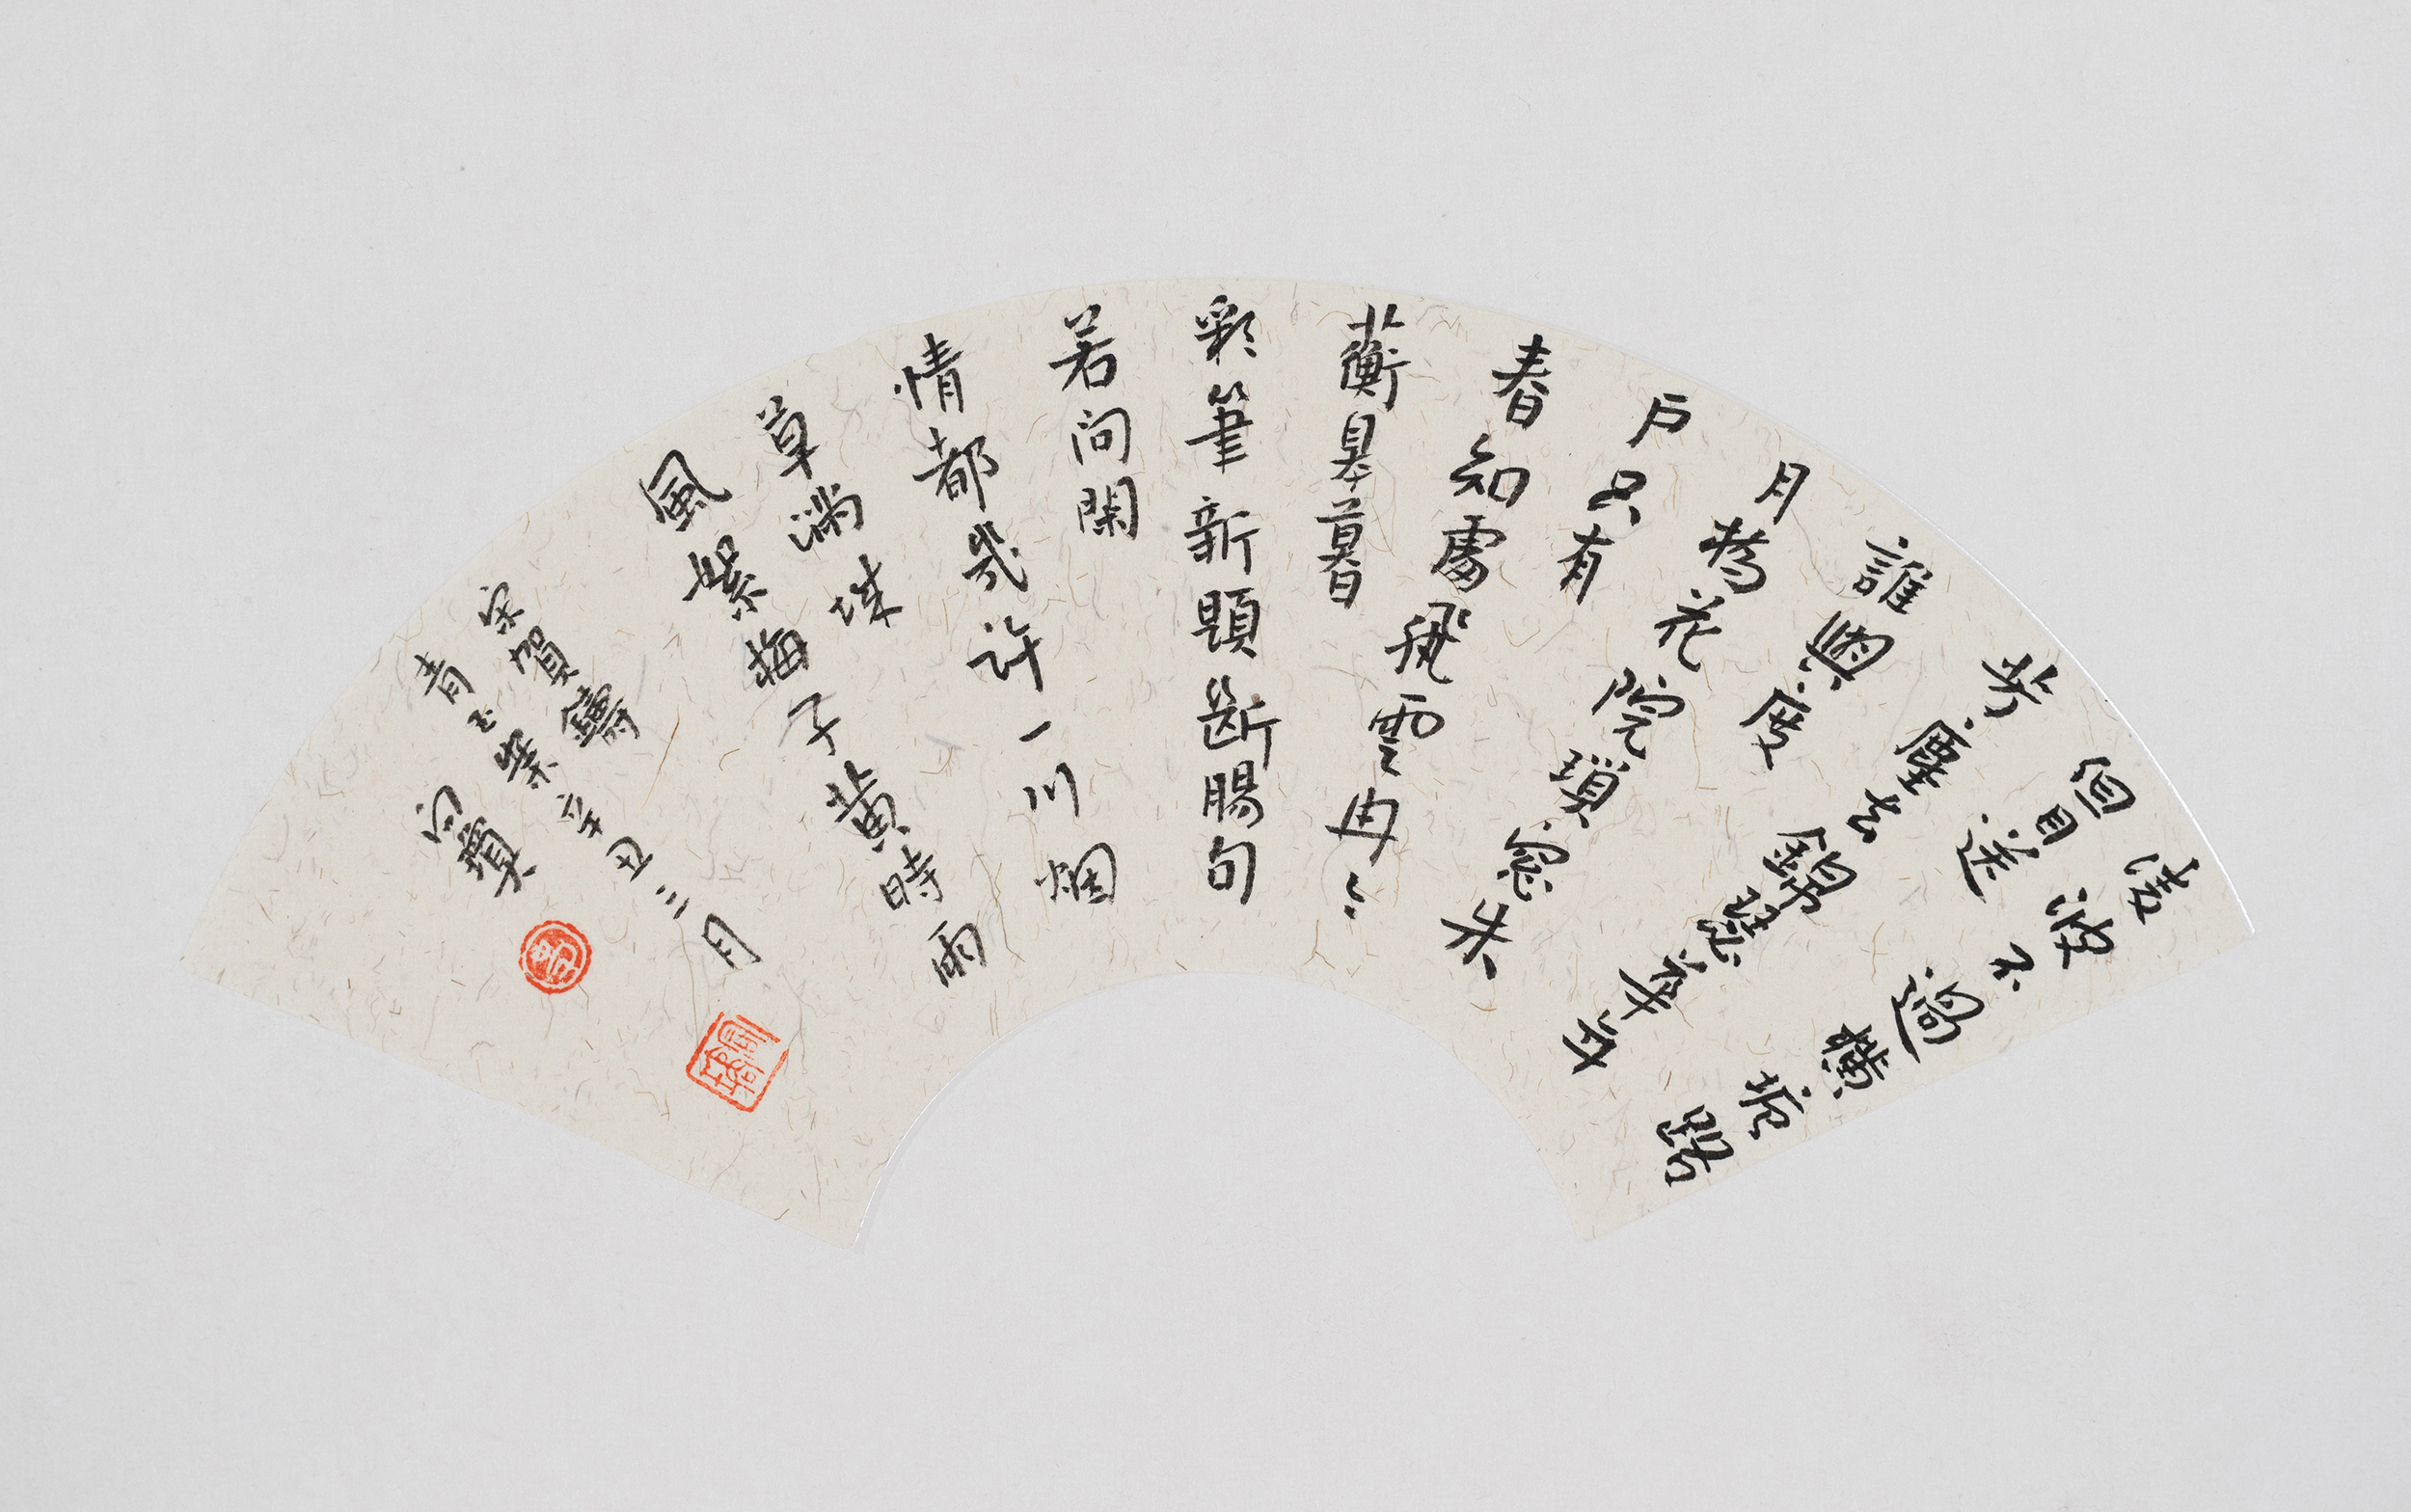 凌波不過橫塘路
但目送
芳塵去錦瑟華年
誰與度
月橋花院瑣窗朱
戶只有
春知處飛雲冉〻
蘅皋暮
彩筆新題斷腸句
若問閑
情都幾许一川烟
草滿城
風絮梅子黃時雨
宋賀鑄
青玉案辛丑三月